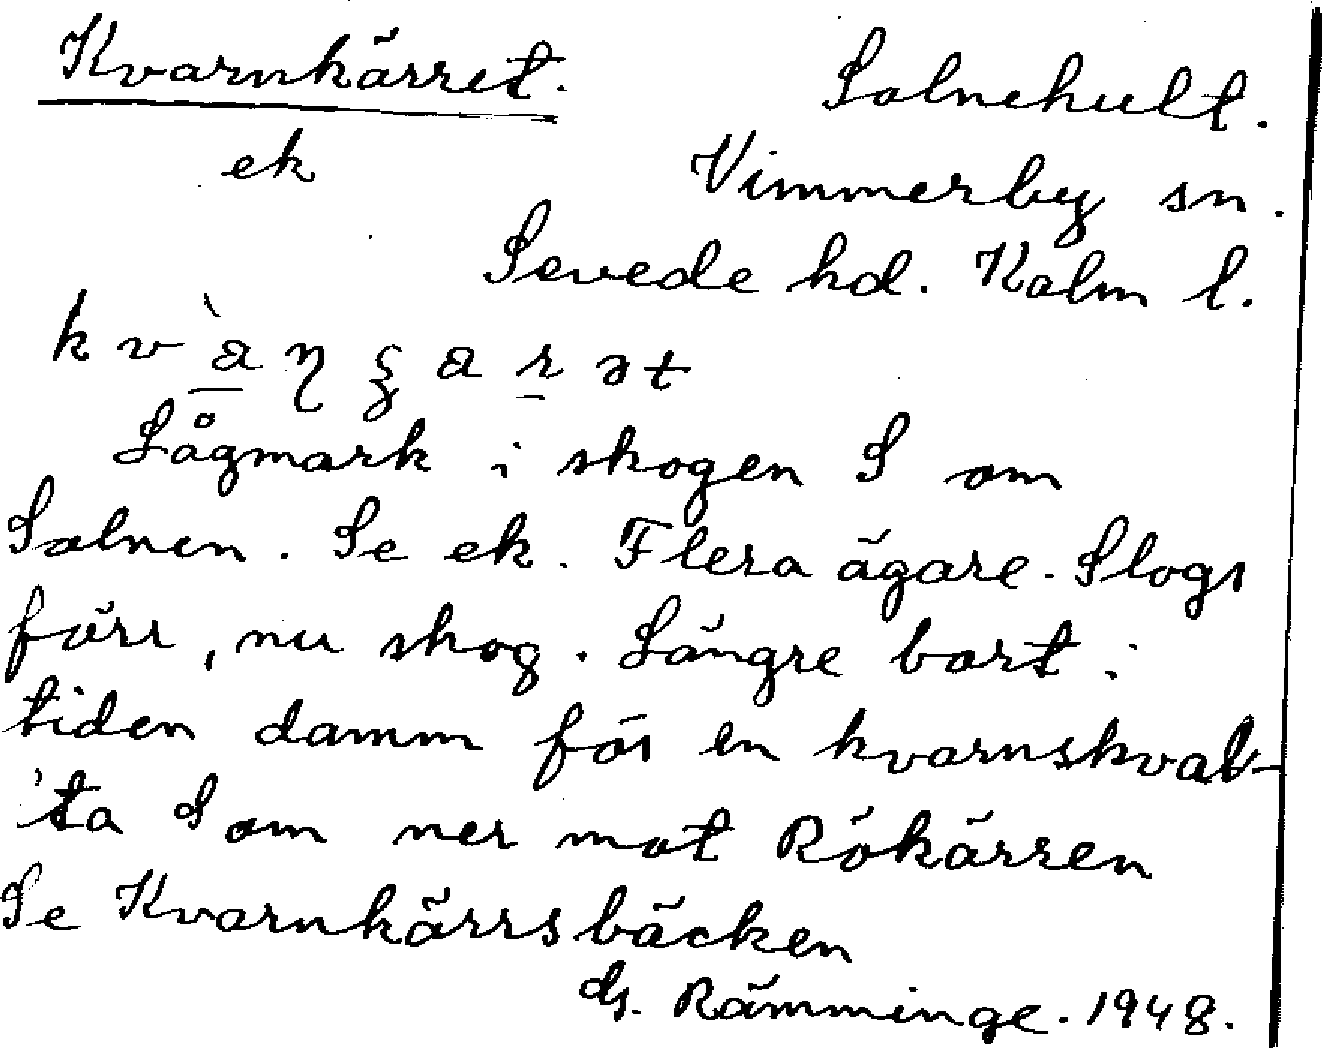 Kvarnkärret. Solnehult.
ek Vimmerby sn.
Sevede hd. Kalm l.
kv̀aɳʂarət
Lågmark i skogen S om
Solnen. Se ek. Flera ägare. Slogs
förr, nu skog. Längre bort i
tiden damm för en kvarnskval-
ta S om ner mot Rökärren
Se Kvarnkärrsbäcken
G. Rämminge. 1948.